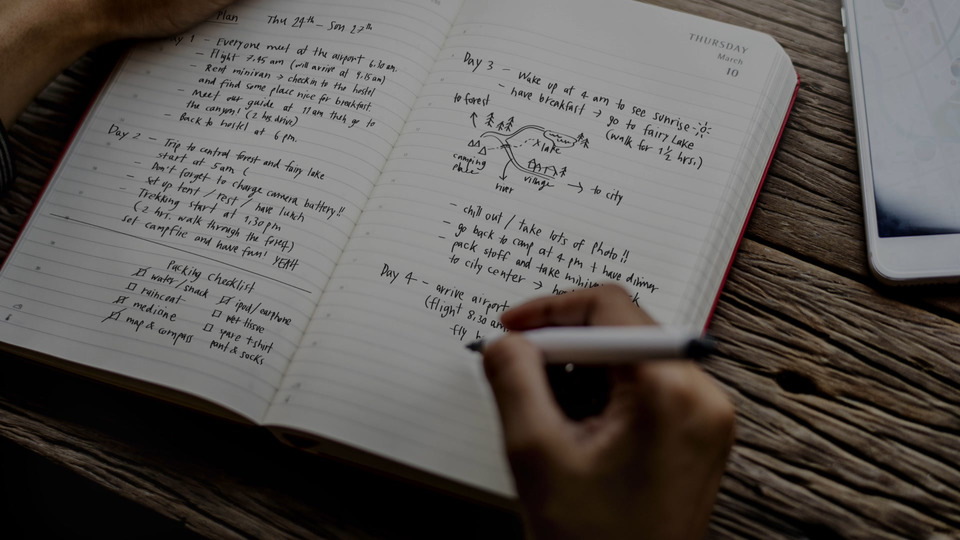 Plan Thu 24th - Sun 27th
1 - Everyone meet at the airport 6.10 am.
- Flight 7.45 am (will arrive at 9.15 am)
- Rent minivan → checkin to the hostel
and find some place nice for breakfast.
- Meet our guide at 11 am then go to
the canyon! (2 hrs drive)
- Back to hostel at 6 pm.
Day 2 - Trip to central forest and fairy lake
start at 5am (
- Don't forget to charge camera battery!!
- Set up tent / rest / have lunch
- Trekking start at 1,30 pm
(2 hrs. walk through the forest)
set campfire and have fun! YEAH
Packing Checklist
water/snack
raincoat
medicine
map & compass
ipod/earphone
wet tissue
spare t-shirt
pant & socks
THURSDAY
March
10
Day 3 - Wake up at 4 am to see sunrise
- have breakfast → go to fairy Lake
(walk for 1 1/2 hrs.)
to forest
lake
camping
place
river
village
to city
- chill out / take lots of photo!!
- go back to camp at 4 pm + have dinner
- pack stuff and take
to city center →
Day 4 - arrive airport
(flight 8.30 am
fly